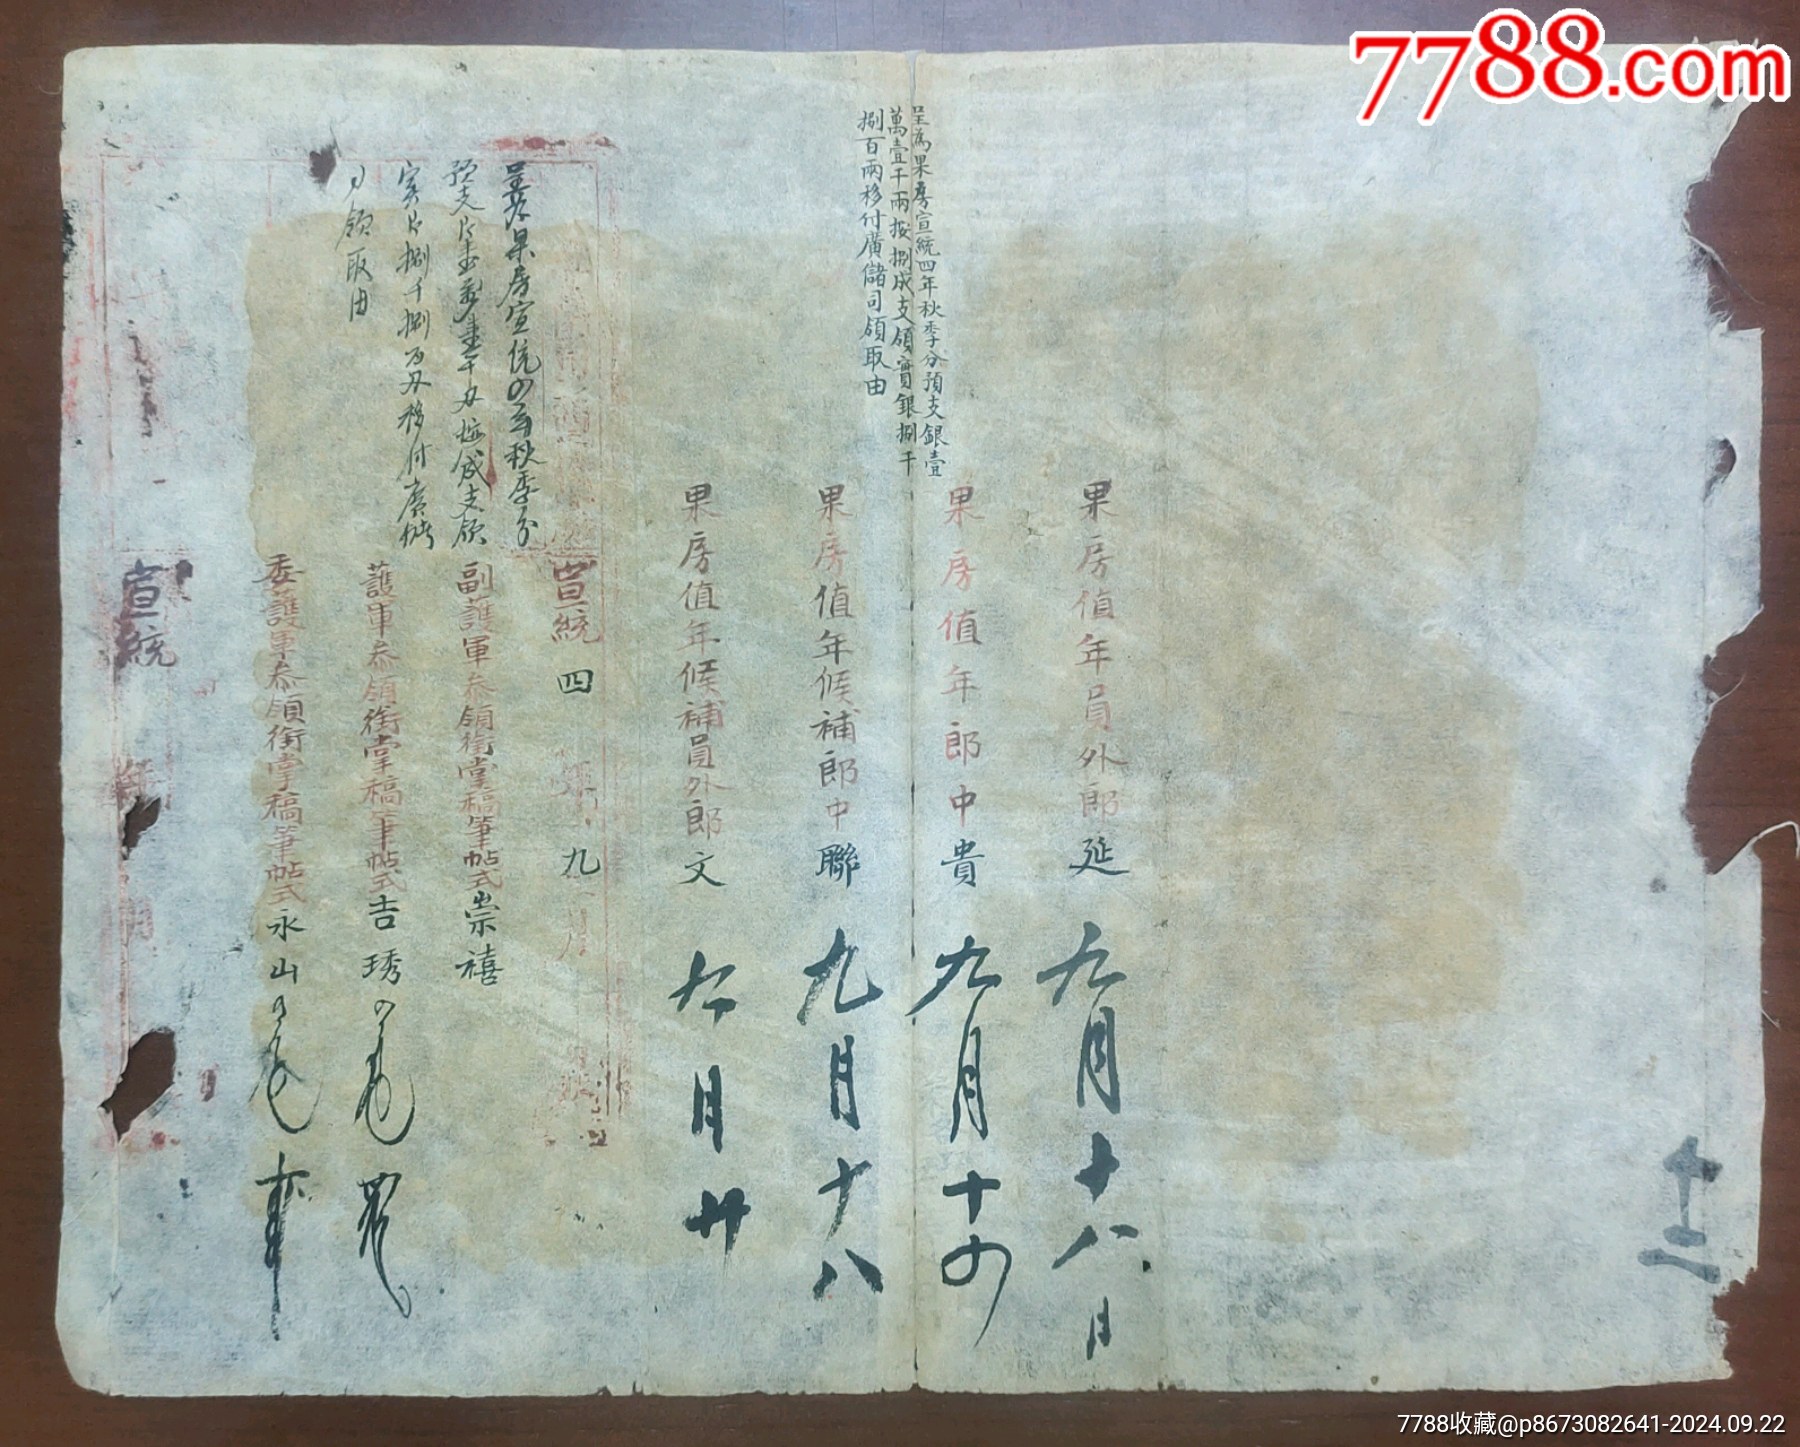 7788.com
十二
果房值年員外郎延
九月十八日
果房值年郎中貴
九月十四
呈為果房宣統四年秋季分預支銀壹
萬壹千兩按捌成支領實銀捌千
捌百兩移付廣儲司領取由
果房值年候補郎中聯
九月十八
果房值年候補員外郎文
九月廿
宣統四年九月
呈為果房宣統四年秋季分
副護軍參領銜堂稿筆帖式崇禧
護軍參領銜堂稿筆帖式吉琇
領取由
委護軍參領銜堂稿筆帖式永山
宣統
年
月
7788收藏@p8673082641-2024.09.22